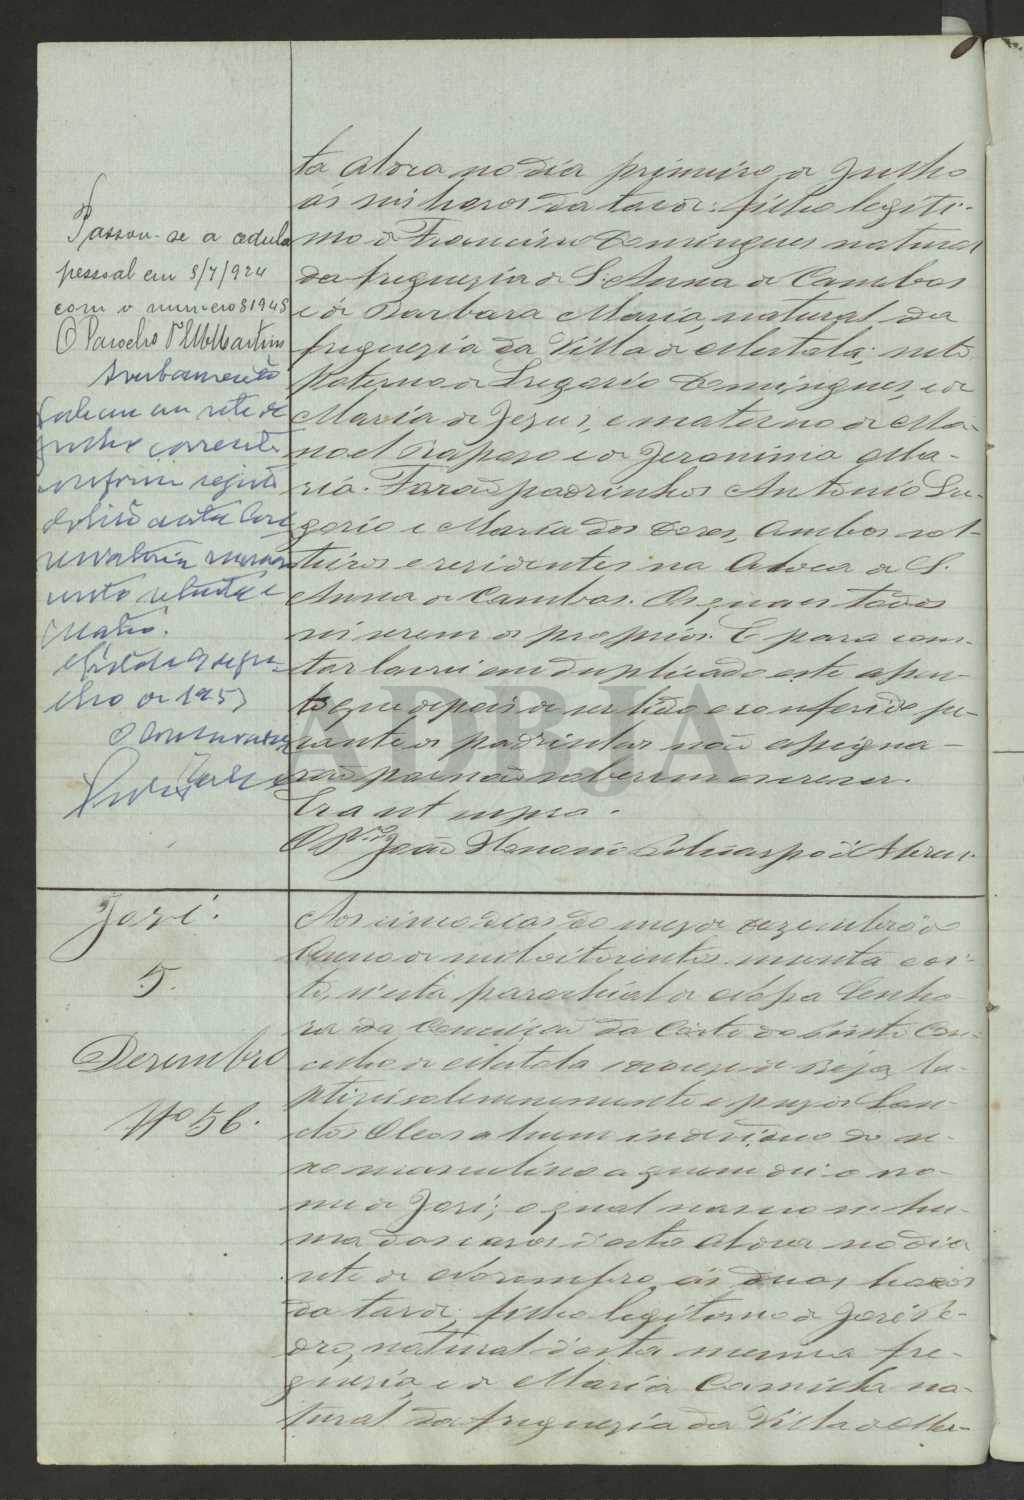 Passou-se a cedula
pessoal em 8/7/924
com o numero 81948
O Parocho Martins
Averbamento
Faleceu em sete de
Junho corrente
conforme registo
d'obito desta Con
servatoria numero
cento setenta e
quatro.
Mértola
de 1957
O Conservador
ta aldeia no dia primeiro de Julho
ás seis horas da tarde: filho legiti-
mo de Francisco Domingues natural
da freguezia de S. Anna de Cambas
e de Barbara Maria, natural da
freguezia da Villa de Mertola; neto
Paterno de Gregorio Domingues, e de
Maria de Jezus, e materno de Ma-
noel Raposo e de Jeronima Ma-
ria. Farão padrinhos Antonio Gre-
gorio e Maria das Dores, Ambos sol-
teiros e residentes na Aldeia de S.
Anna de Cambas. Os quaes todos
sei serem os proprios. E para cons-
tar lavrei em duplicado este assen-
to que depois de ser lido e conferido pe-
rante os padrinhos não assigna-
rão por não saberem escrever.
Era ut supra.
O João d'Abreu.
José.
5.
Dezembro
Nº 56.
Aos cinco dias do mez de Dezembro do
Anno de mil oitocentos noventa e oi-
to, n'esta parochial de Nossa Senho-
ra da Conceição da Corte do Pinto Con-
celho de Mertola de Beja, ba-
ptizei solemnemente e puz os San-
tos Oleos a hum individuo do se-
xo masculino a quem dei o no-
me de José; o qual nasceo n'hu-
ma das casas d'esta Aldeia no dia
sete de Novembro, ás duas horas
da tarde, filho legitimo de José Pe-
dro, natural d'esta mesma fre-
guezia, e de Maria Camilla na-
tural da freguezia da Villa de Mer-
ADBJA